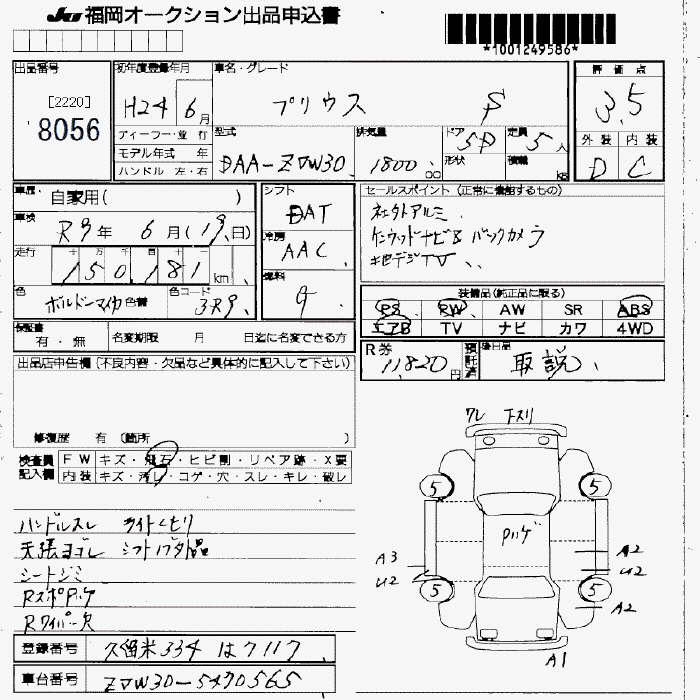 JU 福岡オークション出品申込書
*1001249586*
出品番号
[2220]
8056
初年度登録年月
H24 6月
車名・グレード
プリウス S
評価点
3.5
外装 内装
D C
ディーラー・並行
モデル年式 年
ハンドル 左・右
型式
DAA-ZVW30
排気量
1800 cc
ドア 5D
形状
定員 5人
積載 kg
車歴 自家用( )
車検
R9年 6月(19日)
走行
150,181 km
色
ボルドーマイカ 色替
色コード
3R9
シフト
DAT
冷房
AAC
燃料
G
セールスポイント (正常に機能するもの)
社外アルミ
ケンウッドナビ&バックカメラ
地デジTV
装備品(純正品に限る)
PS PW AW SR ABS
エアB TV ナビ カワ 4WD
保証書
有・無
名変期限 月 日迄に名変できる方
R券
11,820円
預託済
後日品
取説
出品店申告欄(不良内容・欠品など具体的に記入して下さい)
修復歴 有 (箇所 )
検査員記入欄
FW キズ・飛石・ヒビ割・リペア跡・X要
内装 キズ・汚レ・コゲ・穴・スレ・キレ・破レ
ハンドルスレ ライトくもり
天張ヨゴレ シフトノブ外品
シートシミ
RスポPハゲ
Rワイパー欠
登録番号 久留米334 は7117
車台番号 ZVW30-5490565
ワレ 下スリ
5 5
Pハゲ
A3
U2
A2
U2
5 5
A2
A1